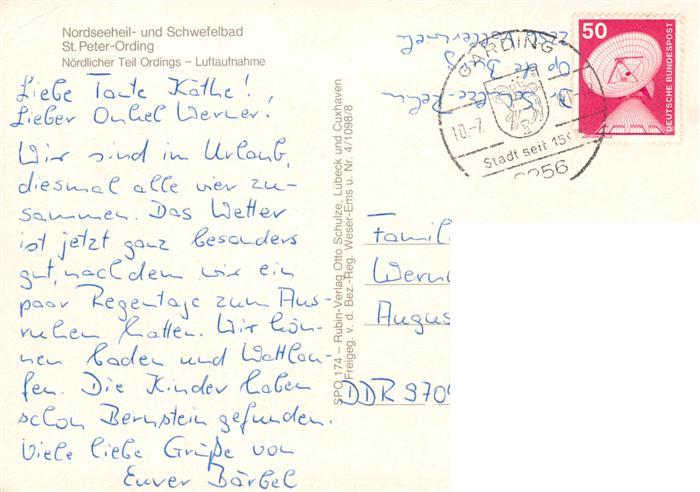 Nordseeheil- und Schwefelbad
St. Peter-Ording
Nördlicher Teil Ordings – Luftaufnahme
Liebe Tante Käthe!,
Lieber Onkel Werner!
Wir sind im Urlaub,
diesmal alle vier zu-
sammen. Das Wetter
ist jetzt ganz besonders
gut, nachdem wir ein
paar Regentage zum Aus-
ruhen hatten. Wir kön-
nen baden und Wattlau-
fen. Die Kinder haben
schon Bernstein gefunden.
Viele liebe Grüße von
Euver Bärbel
SPO 174 – Rubin-Verlag Otto Schulze, Lübeck und Cuxhaven
Freigeg. v. d. Bez.-Reg. Weser-Ems u. Nr. 4/1098/8
Op de
GARDING
10.-7.
Stadt seit 15
2256
50
DEUTSCHE BUNDESPOST
Famili
Wern
Augus
DDR 970